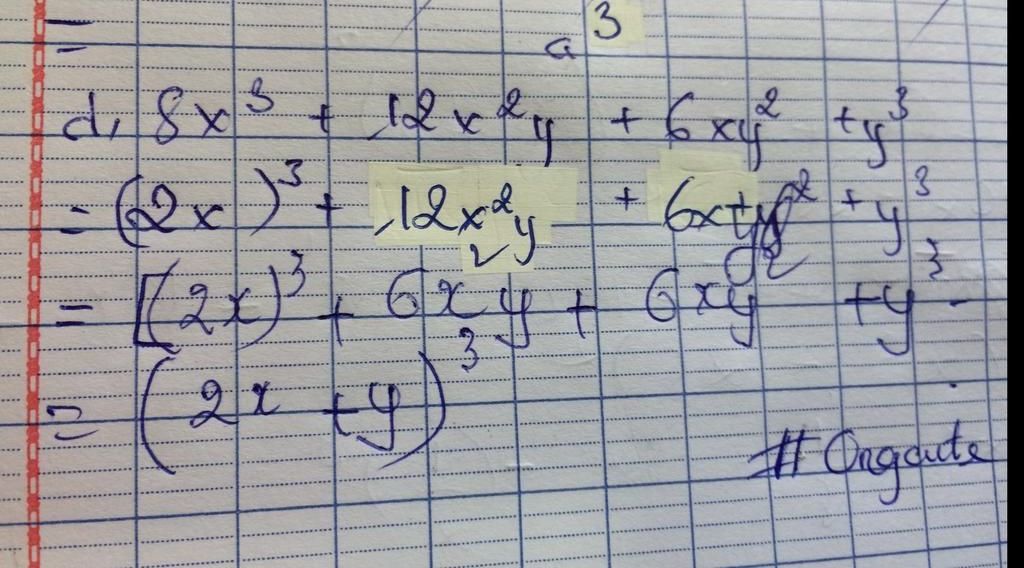 =
a³
d, 8x³ + 12x²y + 6xy² + y³
= (2x)³ + 12x²y + 6xy² + y³
= [(2x)³ + 6x²y + 6xy² + y³
= (2x + y)³
# Ongaute